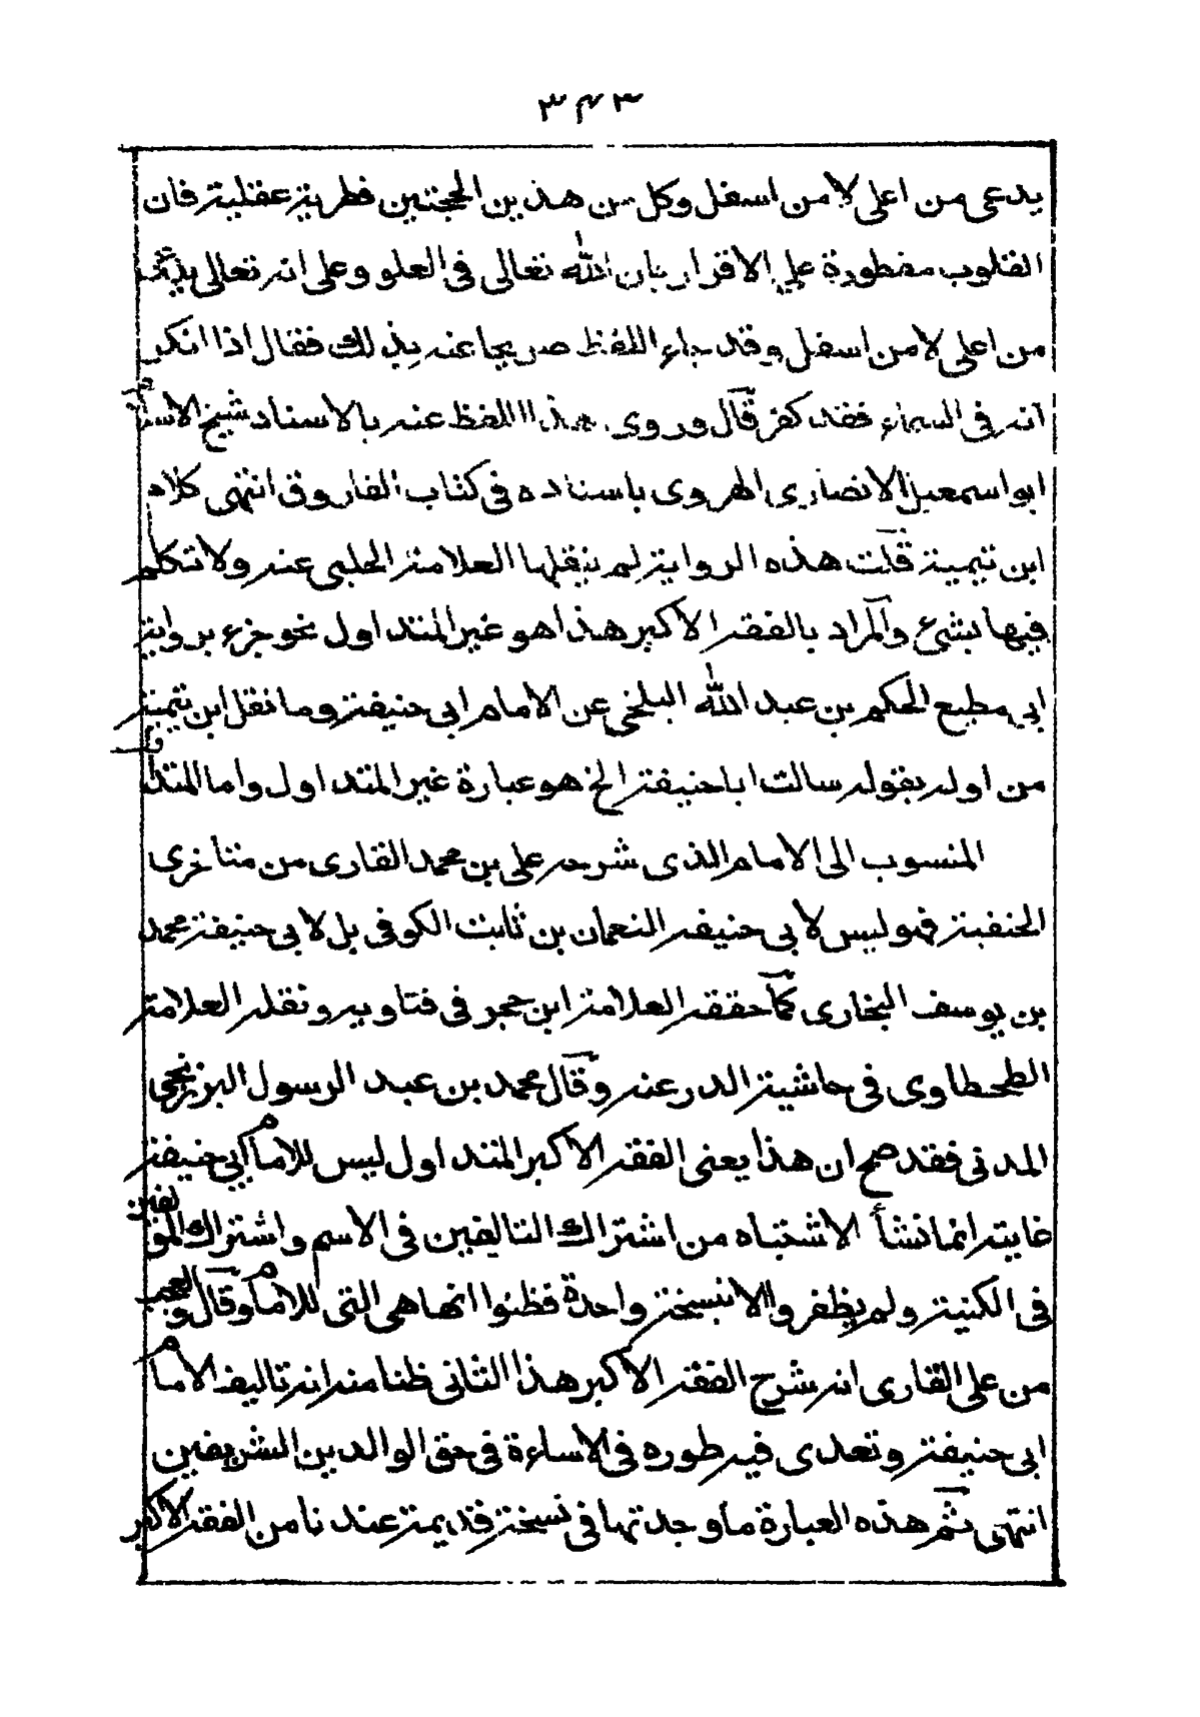 ٣٤٣
يدعى من اعلى لا من اسفل وكل من هذين الحجتين فطرية عقلية فان
القلوب مفطورة على الاقرار بان الله تعالى فى العلو وعلى انه تعالى يدعى
من اعلى لا من اسفل وقد جاء اللفظ صريحا عنه بذلك فقال اذا انكر
انه فى السماء فقد كفر قال وروى هذا اللفظ عنه بالاسناد شيخ الاسلام
ابو اسمعيل الانصارى الهروى باسناده فى كتاب الفاروق انتهى كلام
ابن تيمية قلت هذه الرواية لم ينقلها العلامة الحلبى عنه ولا تكلم
فيها بشىء والمراد بالفقه الاكبر هذا هو غير المتداول نحو جزء برواية
ابى مطيع الحكم بن عبد الله البلخى عن الامام ابى حنيفة وما نقل ابن تيمية
من اوله بقوله سالت ابا حنيفة الخ هو عبارة غير المتداول واما المتداول
المنسوب الى الامام الذى شرحه على بن محمد القارى من متاخرى
الحنفية فهو ليس لابى حنيفه النعمان بن ثابت الكوفى بل لابى حنيفة محمد
بن يوسف البخارى كما حققه العلامة ابن حجر فى فتاويه ونقله العلامة
الطحطاوى فى حاشية الدر عنه وقال محمد بن عبد الرسول البرزنجى
المدنى فقد صح ان هذا يعنى الفقه الاكبر المتداول ليس للامام ابى حنيفة
غايته انما نشأ الاشتباه من اشتراك التاليفين فى الاسم واشتراك المؤلفين
فى الكنية ولم يظفروا الا بنسخة واحدة فظنوا انها هى التى للامام وقال والعجب
من على القارى انه شرح الفقه الاكبر هذا الثانى ظنا منه انه تاليف الامام
ابى حنيفة وتعدى فيه طوره فى الاساءة فى حق الوالدين الشريفين
انتهى ثم هذه العبارة ما وجدتها فى نسخة قديمة عندنا من الفقه الاكبر